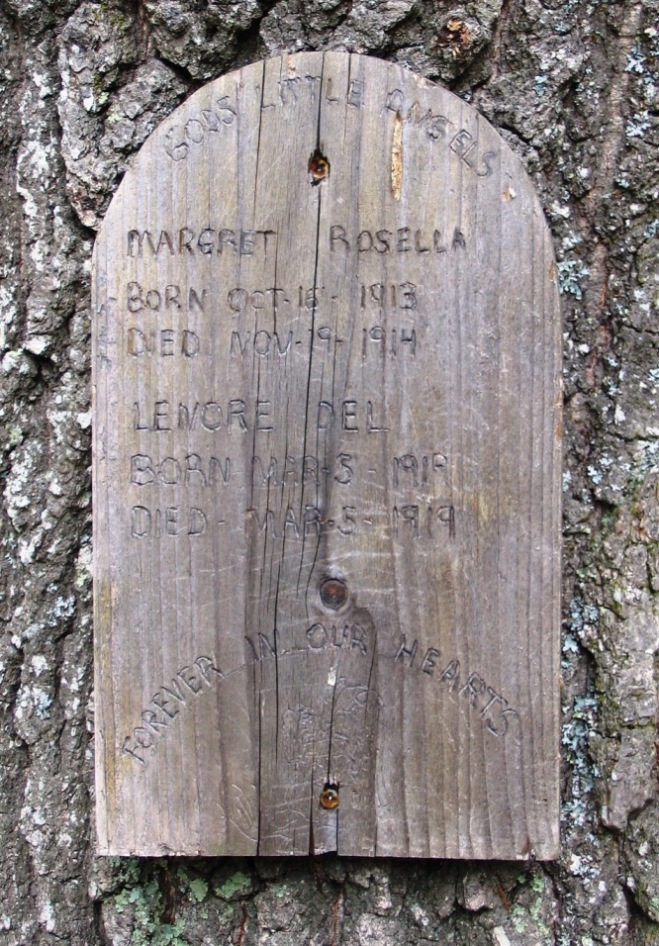 GODS LITTLE ANGELS
MARGRET ROSELLA
BORN OCT-15-1913
DIED NOV-19-1914
LENORE DEL
BORN MAR-5-1919
DIED-MAR-5-1919
FOREVER IN OUR HEARTS